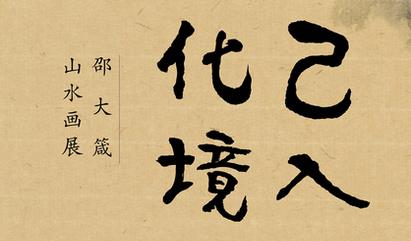 己入
化境
邵大箴
山水画展